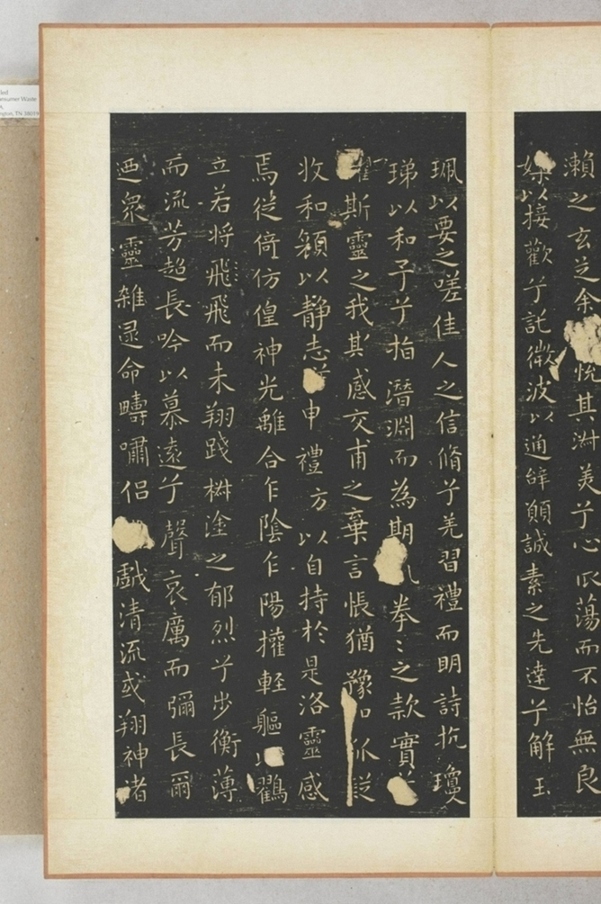 瀨之玄芝余悅其淑美兮心振蕩而不怡無良
以接歡兮託微波以通辭願誠素之先達兮解玉
珮以要之嗟佳人之信脩兮羌習禮而明詩抗瓊
珶以和予兮指潛淵而為期拳〻之款實
斯靈之我其感交甫之棄言悵猶豫 狐疑
收和顏以静志 申禮方以自持於是洛靈感
焉徙倚仿偟神光離合乍陰乍陽擢輕軀以鸖
立若將飛飛而未翔踐椒塗之郁烈兮步衡薄
而流芳超長吟以慕遠兮聲哀厲而彌長爾
迺衆靈雜遝命疇嘯侶 戲清流或翔神渚
ington, TN 3801